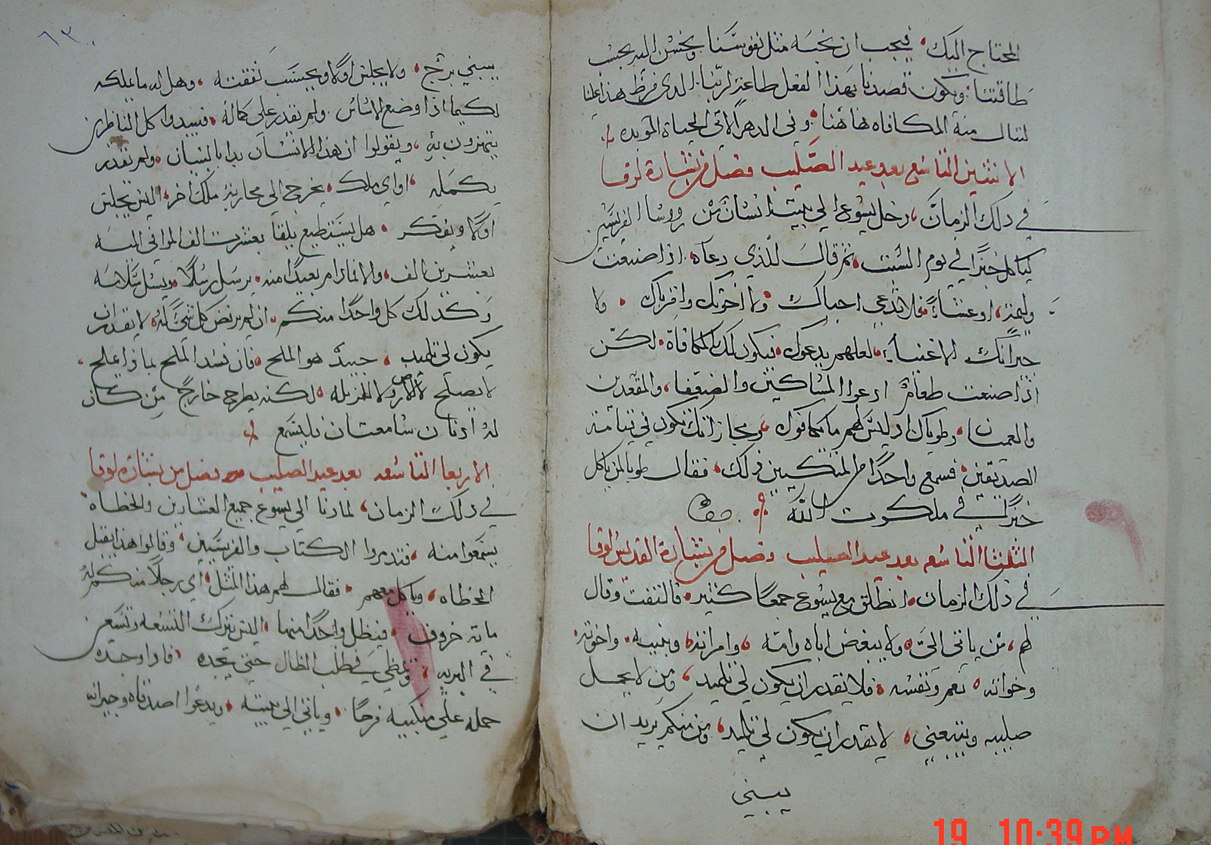 المحتاج اليك، فيجب ان نحبه مثل نفوسنا ونحسن اليه بحسب
طاقتنا، ويكون قصدنا بهذا الفعل طاعة لربنا الذي فرض هذا علينا
لننال منه المكافاه هاهنا، وفي الدهر الاتي الحياة الموبده
الاثنين التاسع بعد عيد الصليب فصل من بشارة لوقا
في ذلك الزمان، دخل يسوع الي بيت انسان من روسا الفريسيين
لياكل خبزا في يوم السبت، ثم قال للذي دعاه، اذا صنعت
وليمة، او عشا، فلا تدعي احباك، ولا اخوتك واقرباك، ولا
جيرانك الاغنيا، لعلهم يدعوك، فيكون لك المكافاة، لكن
اذا صنعت طعام ادعوا المساكين والضعفا، والمقعدين
والعميان، وطوباك اذ ليس لهم ما يكافوك، ومجازاتك تكون في قيامة
الصديقين، فسمع واحدا من المتكيين ذلك، فقال طوبا لمن ياكل
خبزا في ملكوت الله
الثلثا التاسع بعد عيد الصليب فصل من بشارة القديس لوقا
في ذلك الزمان، انطلق مع يسوع جمعا كثير، فالتفت وقال
لهم، من ياتي الي، ولا يبغض اباه وامه، وامراته وبنيه، واخوته
وخواته، نعم ونفسه، فلا يقدر ان يكون لي تلميد، ومن لا يحمل
صليبه ويتبعني، لا يقدر ان يكون لي تلميد، ومن منكم يريد ان
يبني
٦٣
يبني برج، ولا يجلس اولا ويحسب نفقته، وهل له ما يكمله
لكيما اذا وضع الاساس، ولم يقدر على كماله، فيبدوا كل الناظرين
يتهزون به، ويقولوا ان هذا الانسان بدا بالبنيان، ولم يقدر
يكمله، او اي ملك، يخرج الي محاربة ملك اخر، اليس يجلس
اولا ويفكر، هل يستطيع يلقا بعشرت الف الموافي اليه
بعشرين الف، والا فما دام بعيدا منه، يرسل رسلا، ويسل سلامه
وكذلك كل واحدا منكم، ان لم يرفض كل شي له، لا يقدر ان
يكون لي تلميد، جيد هو الملح، فان فسد الملح بماذا يملح،
لا يصلح لا للارض ولا للمزبله، لكنه يطرح خارج من كان
له ادنان سامعتان فليسمع
الاربعا التاسعه بعد عيد الصليب فصل من بشارة لوقا
في ذلك الزمان، لما دنا الي يسوع جميع العشارين والخطاه
يسمعوا منه، فتدمروا الكتاب والفريسيين، وقالوا هدا يقبل
الخطاه، وياكل معهم، فقال لهم هذا المثل، اي رجلا منكم له
ماية خروف، فيظل واحدا منها، اليس يترك التسعه وتسعين
في البريه، ويمظي في طلب الظال حتي يجده، فاذا وجده
حمله علي منكبيه فرحا، وياتي الي بيته، ويدعوا اصدقاه وجيرانه
19 10:39 PM